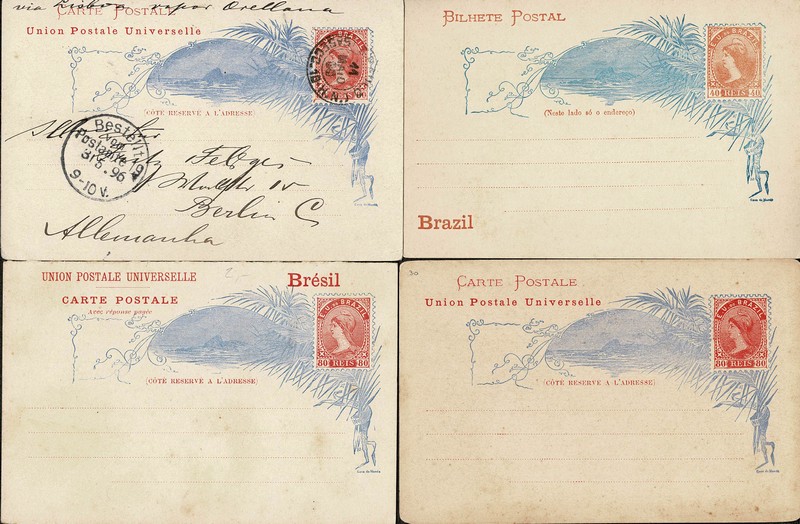 via Lisboa vapor Orellana
CARTE POSTALE
Union Postale Universelle
(CÔTÉ RESERVÉ A L'ADRESSE)
Bestellt
Postamte 19
31 5.96
9-10 V.
Berlin C
Allemanha
Casa da Moeda
BILHETE POSTAL
E. U. DO BRAZIL
40 REIS 40
(Neste lado só o endereço)
Brazil
Casa da Moeda
UNION POSTALE UNIVERSELLE
Brésil
CARTE POSTALE
Avec réponse payée
E. U. DO BRAZIL
80 REIS 80
(CÔTÉ RESERVÉ A L'ADRESSE)
Casa da Moeda
30
CARTE POSTALE
Union Postale Universelle
E. U. DO BRAZIL
80 REIS 80
(CÔTÉ RESERVÉ A L'ADRESSE)
Casa da Moeda